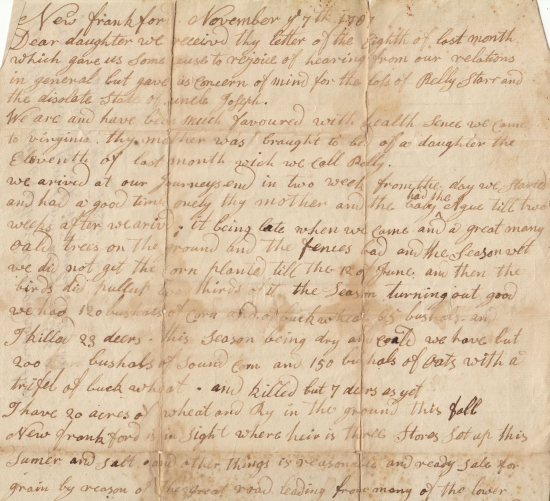 New frankford November ye 7th 178
Dear daughter we received thy letter of the Eighth of last month
which gave us some cause to rejoice of hearing from our relations
in general but gave us concern of mind for the loss of Starr and
the disolate State of uncle Joseph.
We are and have been much favoured with health Sence we came
to virginia. thy mother was braught to bed of a daughter the
Eleventh of last month wich we call
we arived at our Journeys end in two weeks from the day we Started
and had a good time onely thy mother and the baby had the Ague till two
weeks after we arivd. it being late when we came and a great many
trees on the ground and the fences bad and the Season wet
we did not get the corn planted till the 12 of June, and then the
birds did pull up two thirds of it the Season turning out good
we had 120 bushals of corn and of buckwheat 65 bushals and
I killed 23 deers. this Season being dry and we have but
200 bushals of Sound corn and 150 bushals of Oats with a
trifel of buck wheat. and killed but 7 deers as yet
I have 20 acres of wheat and Ry in the ground this fall
New frankford is in Sight where heir is three Stores Set up this
Sumer and Salt and other things is reasonable and ready Sale for
grain by reason of the great road leading from many of the lower